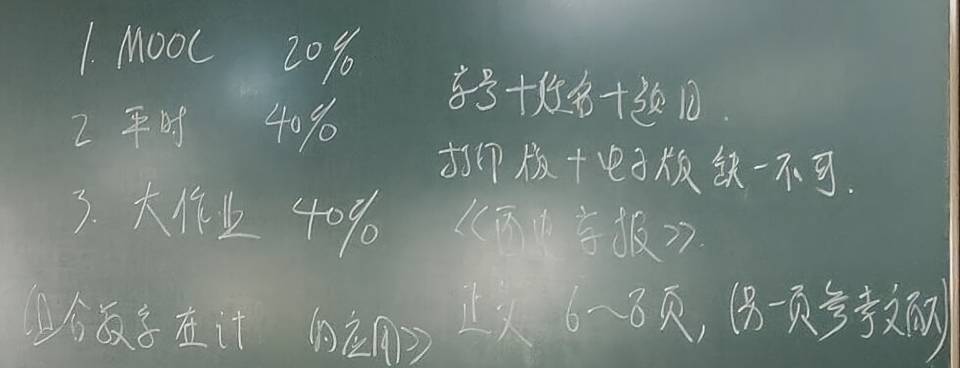 1. MOOC 20%
2 平时 40%
3. 大作业 40%
组合数学在计 的应用》
学号+姓名+题目.
打印版+电子版 缺一不可.
《西电学报》.
正文 6~8页, (另一页参考文献)